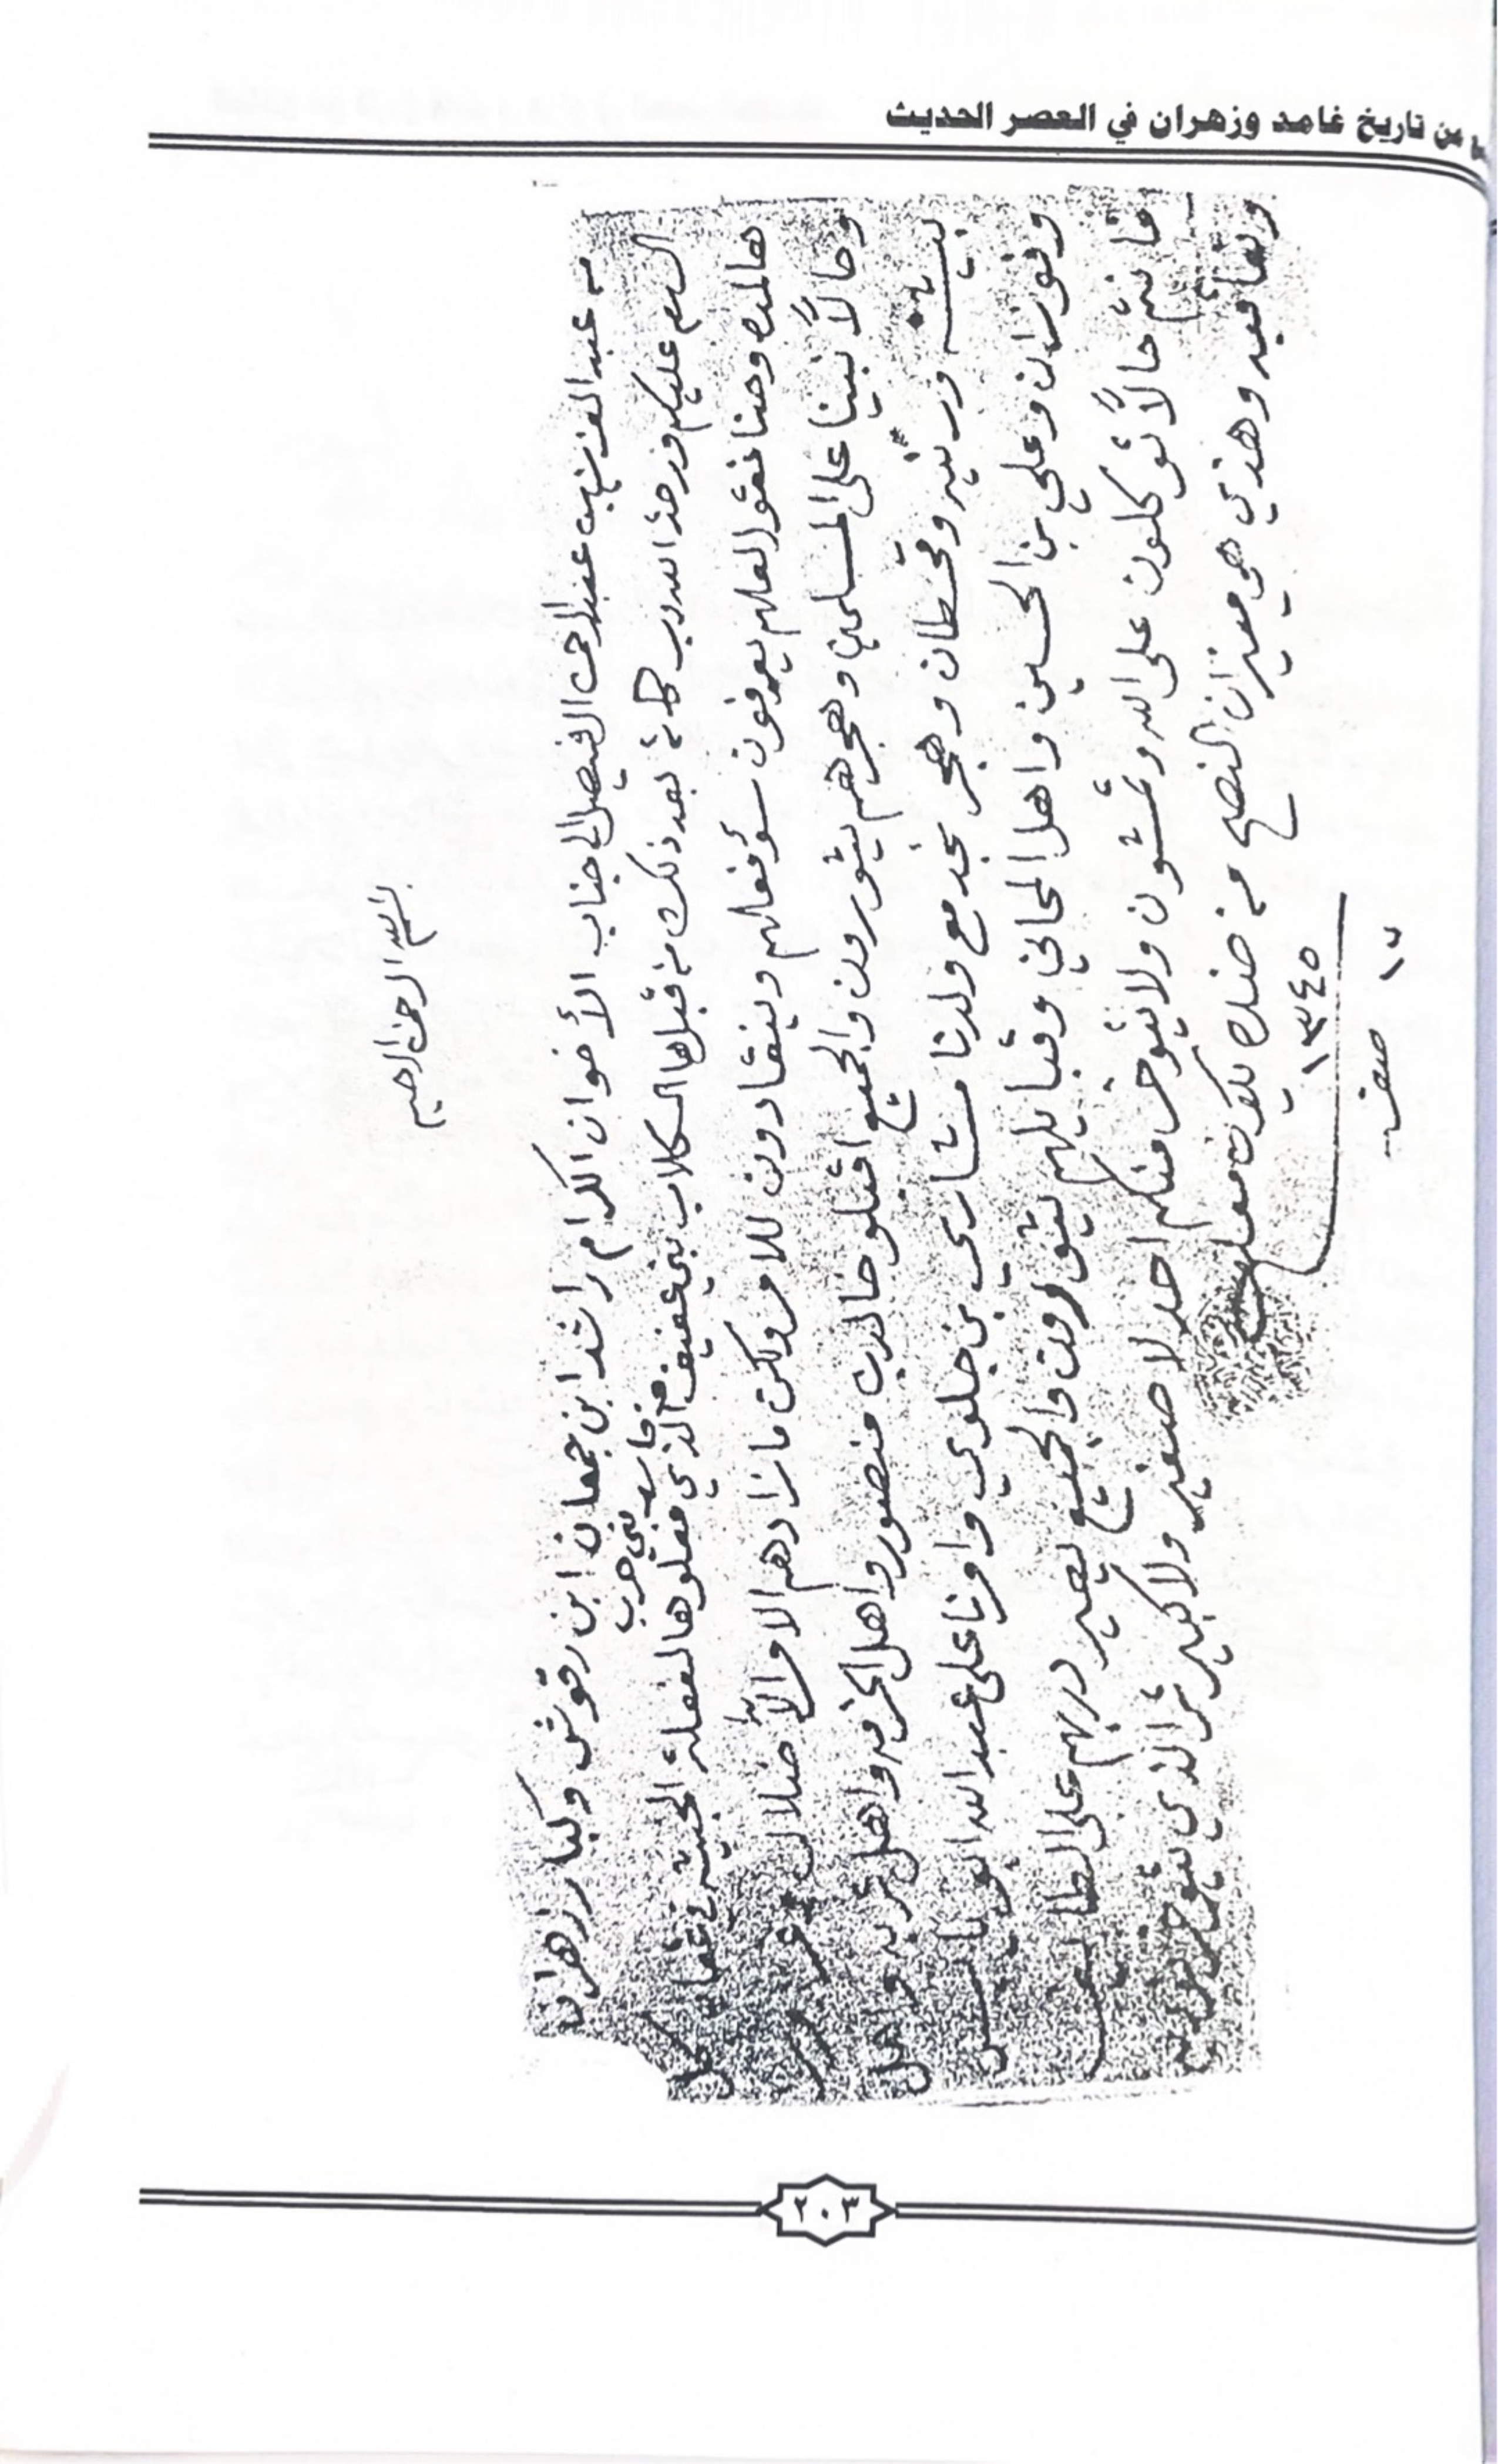 من تاريخ غامد وزهران في العصر الحديث
بسم الله الرحمن الرحيم
من عبد العزيز بن عبد الرحمن الفيصل الى جناب الأخوان الكرام راشد ابن جمعان ابن رقوش وكبار زهران
السلام عليكم ورحمة الله وبركاته بعد ذلك من قبل هالكلاب بني عفيف الذي فعلوها لفعلة الخبيثة كل
مع بني حرب
هالمده وحنا نقول لعلهم يعرفون سؤ فعلهم وينقادون للامر ولكن ما زادهم الامر الا ضلال
وحالاً نبينا على المسلمين وهجرهم يثورون والجميع اقبلو خالد بن منصور واهل الخرمه واهل تربه واهل
بيشه ورنيه وقحطان وهجر نجد مع ولدنا مشاري بن جلوي وامرنا على عبد الله
وفوزان وعلي بن الحسين واهل المحاني وقبايلهم يثورون والجميع يصير دربهم على الطايف
فانتم حالاً توكلون على الله وتمشون ولا يتوخر منكم احد لا صغير ولا كبير ثم الذي يتوخر
وهذي هي ميزان النصح من ضده يكون معلوم
١٣٤٥
١٢ صفر
٢٠٣